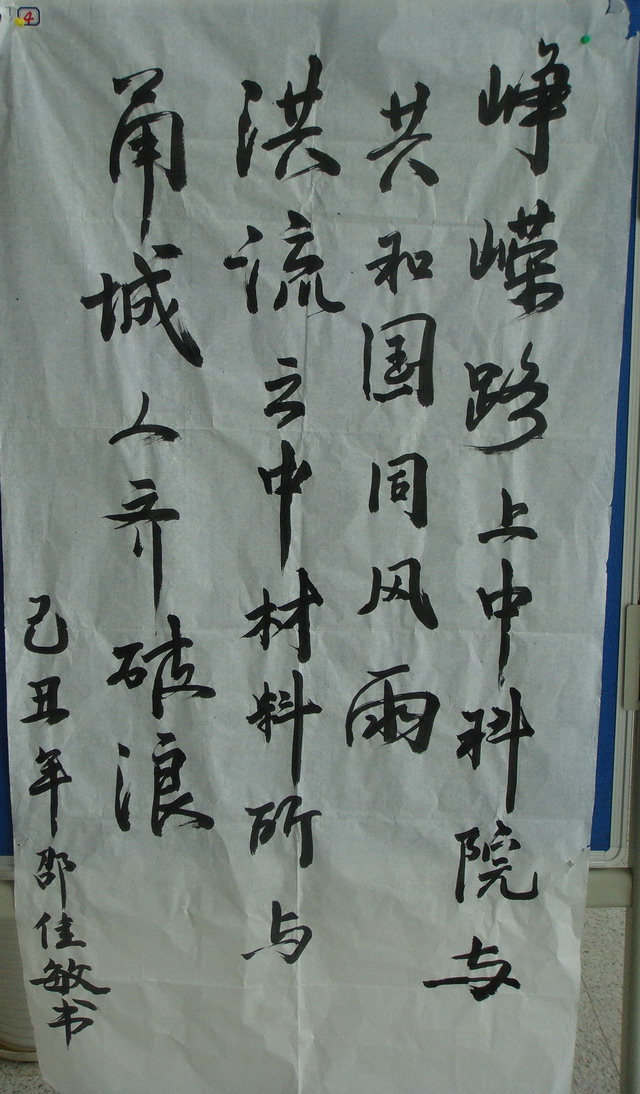 峥嵘路上中科院与
共和国同风雨
洪流云中材料所与
甬城人齐破浪
己丑年邵佳敏书
4